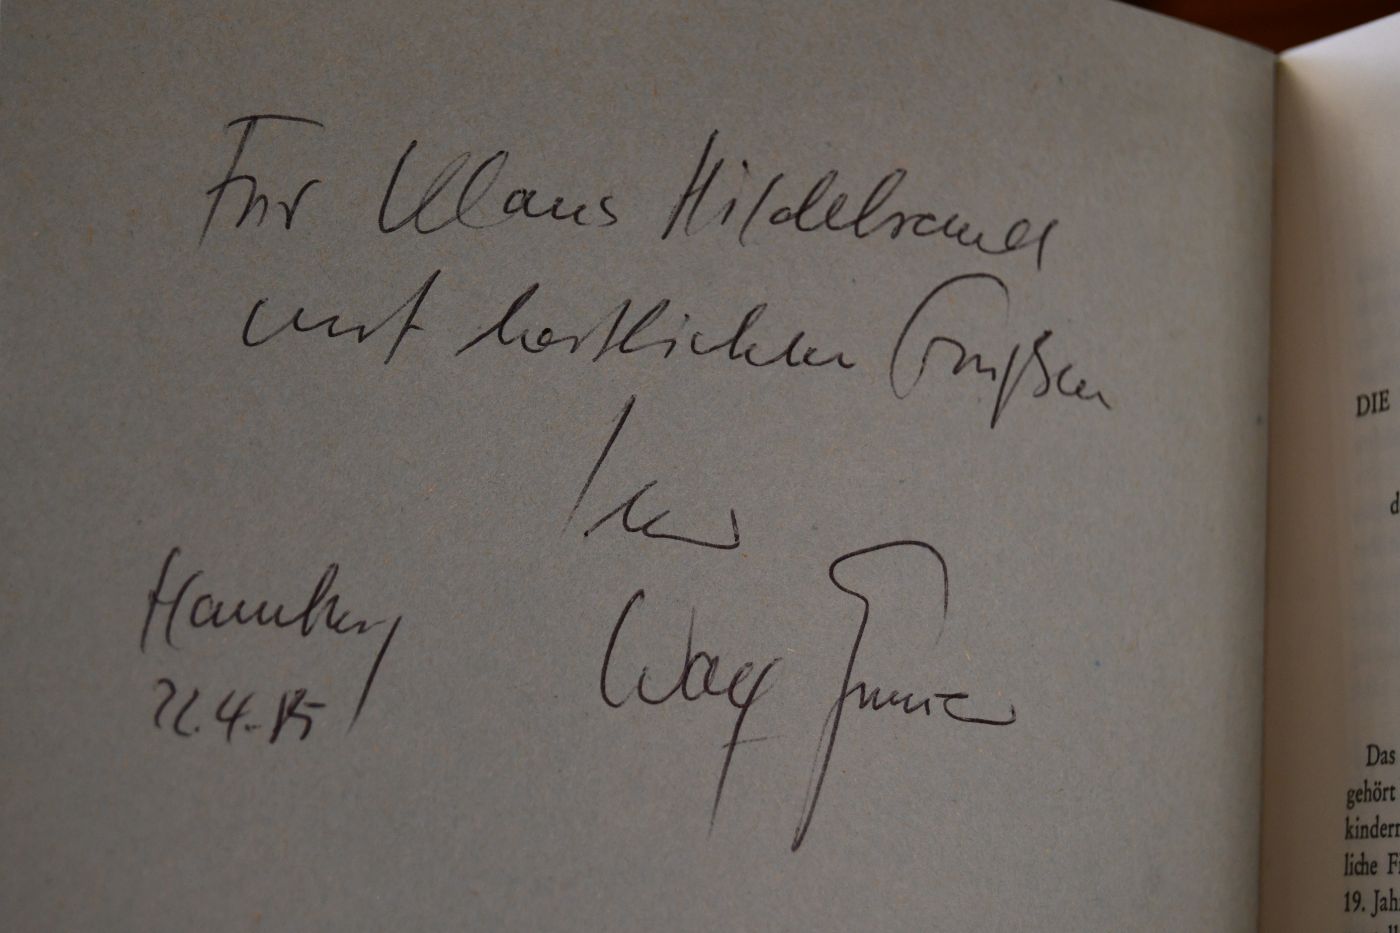 Für Klaus Hildebrand
mit herzlichen Grüßen
Ihr
Wolf
Hamburg
22.4.85
DIE
d
Das
gehört
kindern
liche Fi
19. Jah